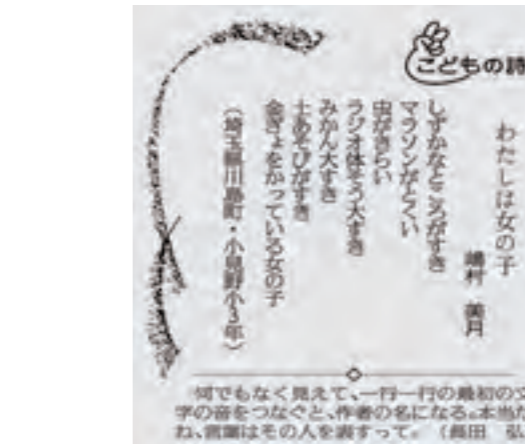 こどもの詩
わたしは女の子
嶋村 美月
しずかなところがすき
マラソンがとくい
虫がきらい
ラジオ体そう大すき
みかん大すき
土あそびがすき
金ぎょをかっている女の子
(埼玉県川島町・小見野小3年)
何でもなく見えて、一行一行の最初の文
字の音をつなぐと、作者の名になる。本当だ
ね、言葉はその人を表すって。(長田 弘